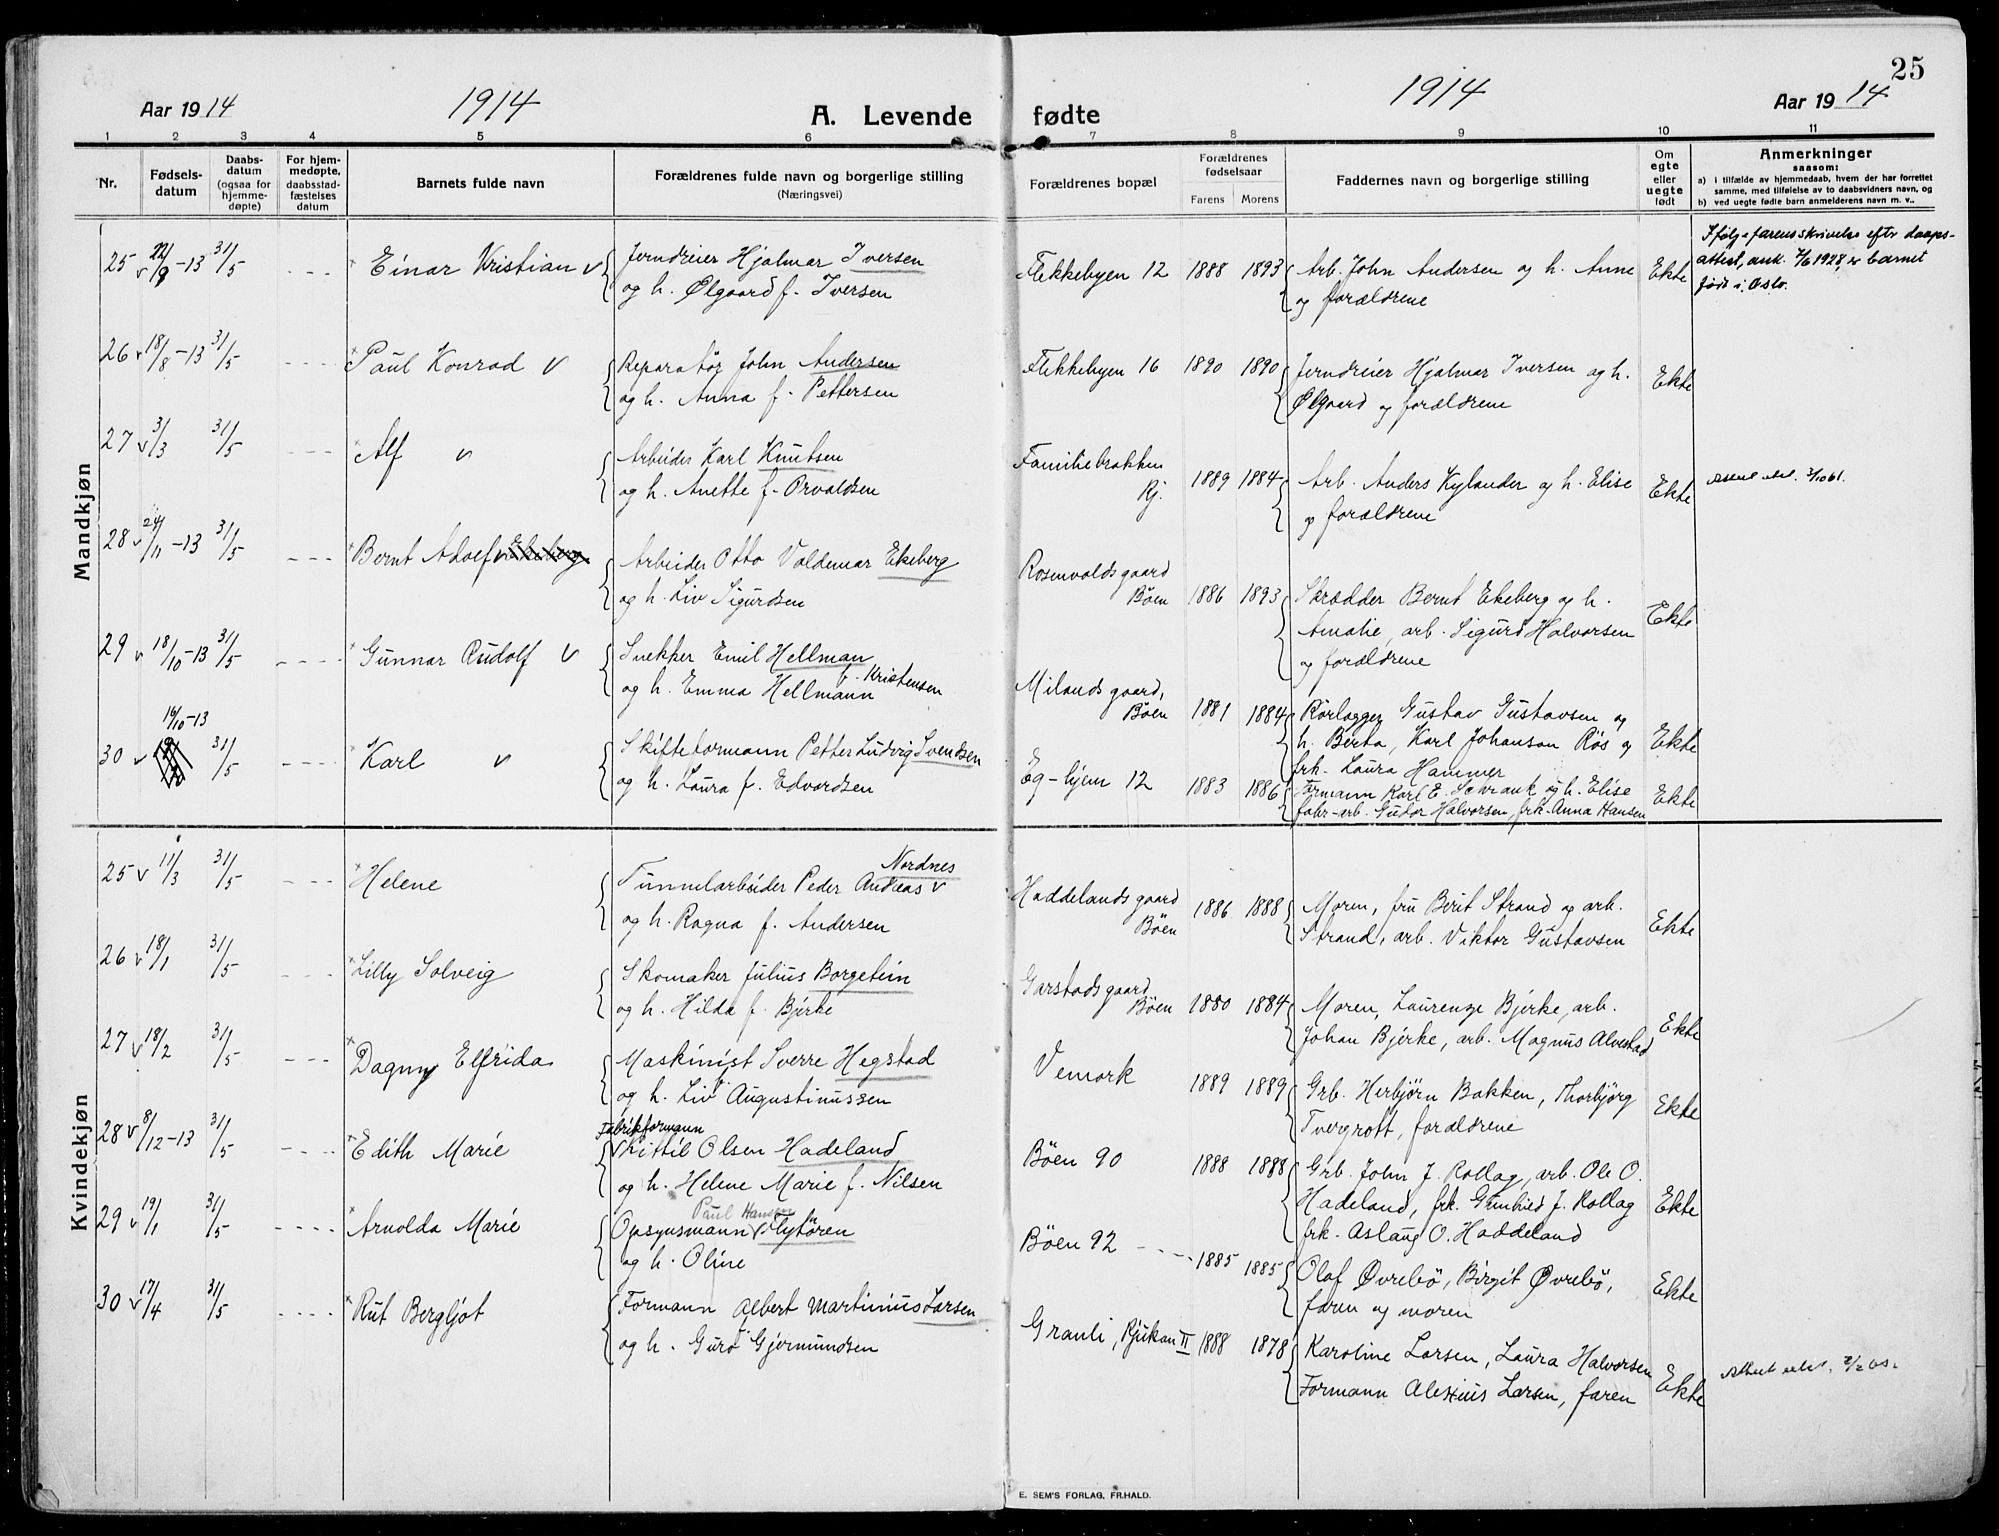 25
Aar 1914
1914
A. Levende fødte
1914
Aar 1914
1 2 3 4 5 6 7 8 9 10 11
Nr.
Fødsels-
datum
Daabs-
datum
(ogsaa for
hjemme-
døpte)
For hjem-
medøpte,
daabsstad-
fæstelses
datum
Barnets fulde navn
Forældrenes fulde navn og borgerlige stilling
(Næringsvei)
Forældrenes bopæl
Forældrenes
fødselsaar
Farens Morens
Faddernes navn og borgerlige stilling
Om
egte
eller
uegte
født
Anmerkninger
saasom:
a) i tilfælde av hjemmedaab, hvem der har forrettet
samme, med tilføielse av to daabsvidners navn, og
b) ved uegte fødte barn anmelderens navn m. v..
Mandkjøn
25 v 22/9-13 31/5 Einar Kristian v Jerndreier Hjalmar Iversen
og h. Ølgaard f. Iversen
Flekkebyen 12 1888 1893 Arb. John Andersen og h. Anne
og forældrene
Ekte
Ifølge farens skrivelse efter daaps-
attest, ank. 7/6 1928, er barnet
født i Oslo.
26 v 18/8-13 31/5 Paul Konrad v Reparatør John Andersen
og h. Anna f. Pettersen
Flekkebyen 16 1890 1890 Jerndreier Hjalmar Iversen og h.
Ølgaard og forældrene
Ekte
27 v 3/3 31/5 Alf v Arbeider Karl Knutsen
og h. Anette f. Orvaldsen
Familiebrakken
Rj. 1889 1884 Arb. Anders Kylander og h. Elise
og forældrene
Ekte
28 v 24/11-13 31/5 Bernt Adolf v Ekeberg Arbeider Otto Valdemar Ekeberg
og h. Liv Sigurdsen
Rosenvoldsgaard
Böen 1886 1893 Skrædder Bernt Ekeberg og h.
Amalie, arb. Sigurd Halvorsen
og forældrene
Ekte
29 v 18/10-13 31/5 Gunnar Rudolf v Snekker Emil Hellman
f. Kristensen
og h. Emma Hellmann
Milandsgaard,
Böen 1881 1884 Rörlægger Gustav Gustavsen og
h. Berta, Karl Johanson Røs og
frk. Laura Hammer
Ekte
30 v 16/10-13 31/5 Karl v Skifteformann Petter Ludvig Svendsen
og h. Laura f. Edvardsen
Eg-hjem 12 1883 1886 Formann Karl E. Schrank og h. Elise
fabr-arb. Gudor Halvorsen, frk. Anna Hansen
Ekte
Kvindekjøn
25 v 11/3 31/5 Helene Nordnes
Tunnelarbeider Peder Andreas v
og h. Ragna f. Andersen
Haddelandsgaard
Böen 1886 1888 Moren, fru Berit Strand og arb.
Strand, arb. Viktor Gustavsen
Ekte
26 v 18/1 31/5 Lilly Solveig Skomaker Julius Borgetein
og h. Hilda f. Bjerke
Garstadsgaard
Böen 1880 1884 Moren, Laurenze Bjerke, arb.
Johan Bjerke, arb. Magnus Alvestad
Ekte
27 v 18/2 31/5 Dagny Elfrida Maskinist Sverre Hegstad
og h. Liv Augustinussen
Vemork 1889 1889 Grb. Herbjörn Bakken, Thorbjörg
Tvergrott, forældrene
Ekte
28 v 8/12-13 31/5 Edith Marie Fabrikformann
Kittil Olsen Hadeland
og h. Helene Marie f. Nilsen
Böen 90 1888 1888 Grb. John J. Rollag, arb. Ole O.
Hadeland, frk. Gunhild J. Rollag
frk. Aslaug O. Haddeland
Ekte
29 v 19/1 31/5 Arnolda Marie Paul Hansen
Opsynsmann v Flytören
og h. Oline
Böen 92 1885 1885 Olaf Øvrebö, Birgit Øvrebö,
faren og moren
Ekte
30 v 17/4 31/5 Rut Bergljot Formann Albert Martinius Larsen
og h. Guro Gjermundsen
Granli, Rjukan II 1888 1878 Karoline Larsen, Laura Halvorsen
Formann Alexius Larsen, faren
Ekte
E. SEM'S FORLAG, FR.HALD.